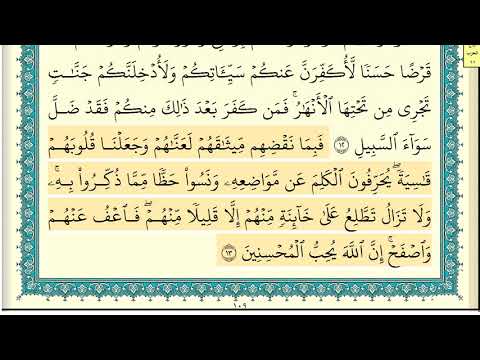 قَرْضًا حَسَنًا لَّأُكَفِّرَنَّ عَنكُمْ سَيِّـَٔاتِكُمْ وَلَأُدْخِلَنَّكُمْ جَنَّـٰتٍ
تَجْرِى مِن تَحْتِهَا ٱلْأَنْهَـٰرُ ۚ فَمَن كَفَرَ بَعْدَ ذَٰلِكَ مِنكُمْ فَقَدْ ضَلَّ
سَوَآءَ ٱلسَّبِيلِ ١٢ فَبِمَا نَقْضِهِم مِّيثَـٰقَهُمْ لَعَنَّـٰهُمْ وَجَعَلْنَا قُلُوبَهُمْ
قَـٰسِيَةً ۖ يُحَرِّفُونَ ٱلْكَلِمَ عَن مَّوَاضِعِهِۦ ۙ وَنَسُوا۟ حَظًّا مِّمَّا ذُكِّرُوا۟ بِهِۦ ۚ
وَلَا تَزَالُ تَطَّلِعُ عَلَىٰ خَآئِنَةٍ مِّنْهُمْ إِلَّا قَلِيلًا مِّنْهُمْ ۖ فَٱعْفُ عَنْهُمْ
وَٱصْفَحْ ۚ إِنَّ ٱللَّهَ يُحِبُّ ٱلْمُحْسِنِينَ ١٣
١٠٩